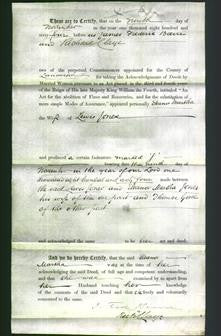 These are to Certify, that on the Ninth day of
November in the year of our Lord one thousand eight hundred and
sixty-four before us James Frederic
and Richard
two of the perpetual Commissioners appointed for the County of
for taking the Acknowledgments of Deeds by
Married Women pursuant to an Act passed in the third and fourth years
of the Reign of His late Majesty King William the Fourth, intituled "An
Act for the Abolition of Fines and Recoveries, and for the substitution of
more simple Modes of Assurance," appeared personally Martha
the wife of Lewis Jones
and produced a certain Indenture marked
bearing date the ninth day of
November in the year of our Lord one
thousand eight hundred and sixty four made between
the said Lewis Jones and Martha Jones
his wife of the one part and Thomas
of the other part
and acknowledged the same to be her act and deed.
And we do hereby Certify, that the said
Martha was at the time of her
acknowledging the said Deed, of full age and competent understanding, and
that she was examined by us apart from
her Husband touching her knowledge
of the contents of the said Deed and that she freely and voluntarily
consented to the same.